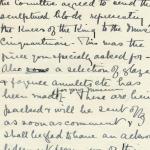 the Committee agreed to send the
sculptured blocks representing
the Knees of the King to the Mus:
Cinquantenaire. This was the
piece you specially asked for -
Also a selection of glaze
& faience amulets etc has
been made for your museum. These are being
packed & will be sent off
as soon as convenient. I
shall be glad to have an ackno